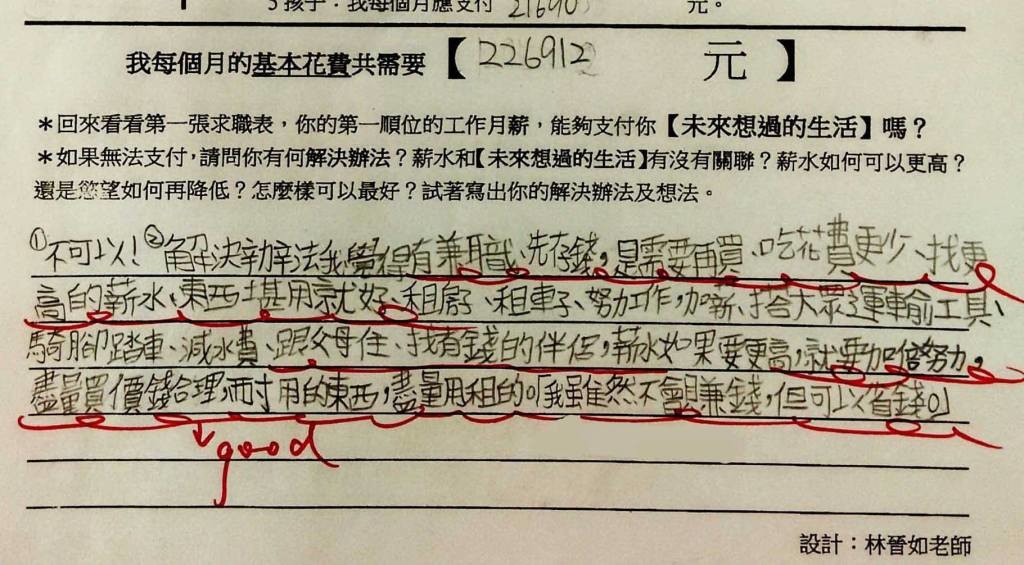 3 孩子：我每個月應支付 21690 元。
我每個月的基本花費共需要【226912 元】
＊回來看看第一張求職表，你的第一順位的工作月薪，能夠支付你【未來想過的生活】嗎？
＊如果無法支付，請問你有何解決辦法？薪水和【未來想過的生活】有沒有關聯？薪水如何可以更高？
還是慾望如何再降低？怎麼樣可以最好？試著寫出你的解決辦法及想法。
①不可以！②解決辦法我覺得有兼職、先存錢，是需要再買、吃花費更少、找更
高的薪水、東西堪用就好、租房子、租車子、努力工作，加薪、搭大眾運輸工具、
騎腳踏車、減水費、跟父母住、找有錢的伴侶，薪水如果要更高，就要加倍努力，
盡量買價錢合理，耐用的東西，盡量用租的。「我雖然不會賺錢，但可以省錢。」
good
設計：林晉如老師